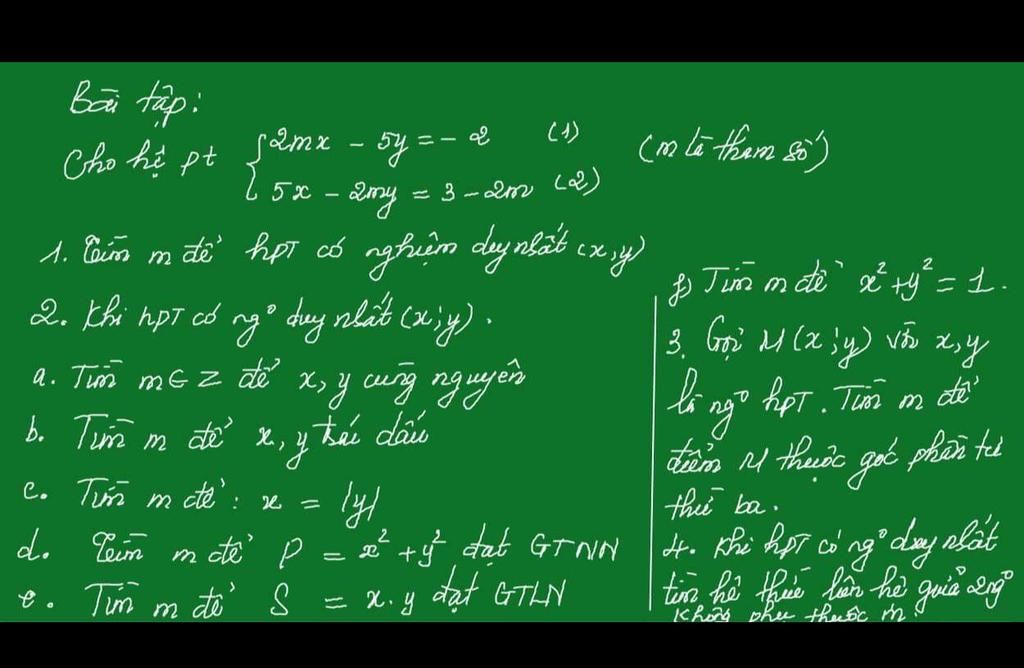 Bài tập:
Cho hệ pt { 2mx - 5y = - 2 (1)
5x - 2my = 3 - 2m (2)
(m là tham số)
1. Tìm m để hpT có nghiệm duy nhất (x,y)
2. Khi hpT có ng⁰ duy nhất (x;y).
a. Tìm m ∈ Z để x, y cùng nguyên
b. Tìm m để x, y trái dấu
c. Tìm m để : x = |y|
d. Tìm m để P = x² + y² đạt GTNN
e. Tìm m để S = x.y đạt GTLN
f) Tìm m để x² + y² = 1.
3. Gọi M(x;y) với x,y
là ng⁰ hpT. Tìm m để
điểm M thuộc góc phần tư
thứ ba.
4. Khi hpT có ng⁰ duy nhất
tìm hệ thức liên hệ giữa 2 ng⁰
không phụ thuộc m.